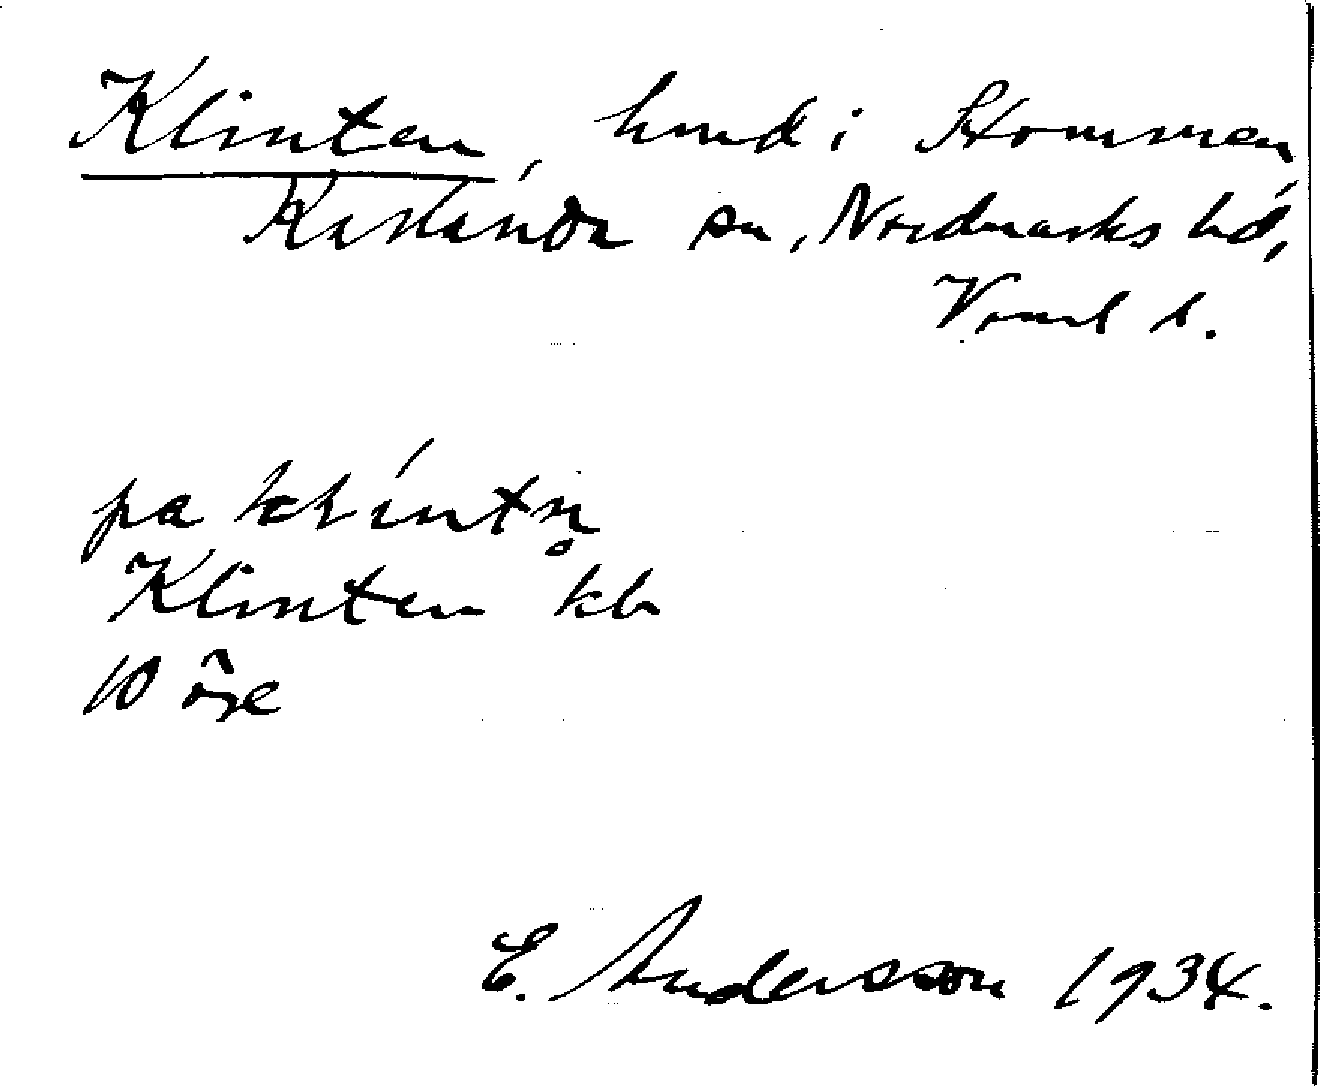 Klinten, hmd i Stommen
Karlanda sn, Nordmarks hd,
Värml l.
pa klíntn̥
Klinten kb
10 öre
E. Andersson 1934.